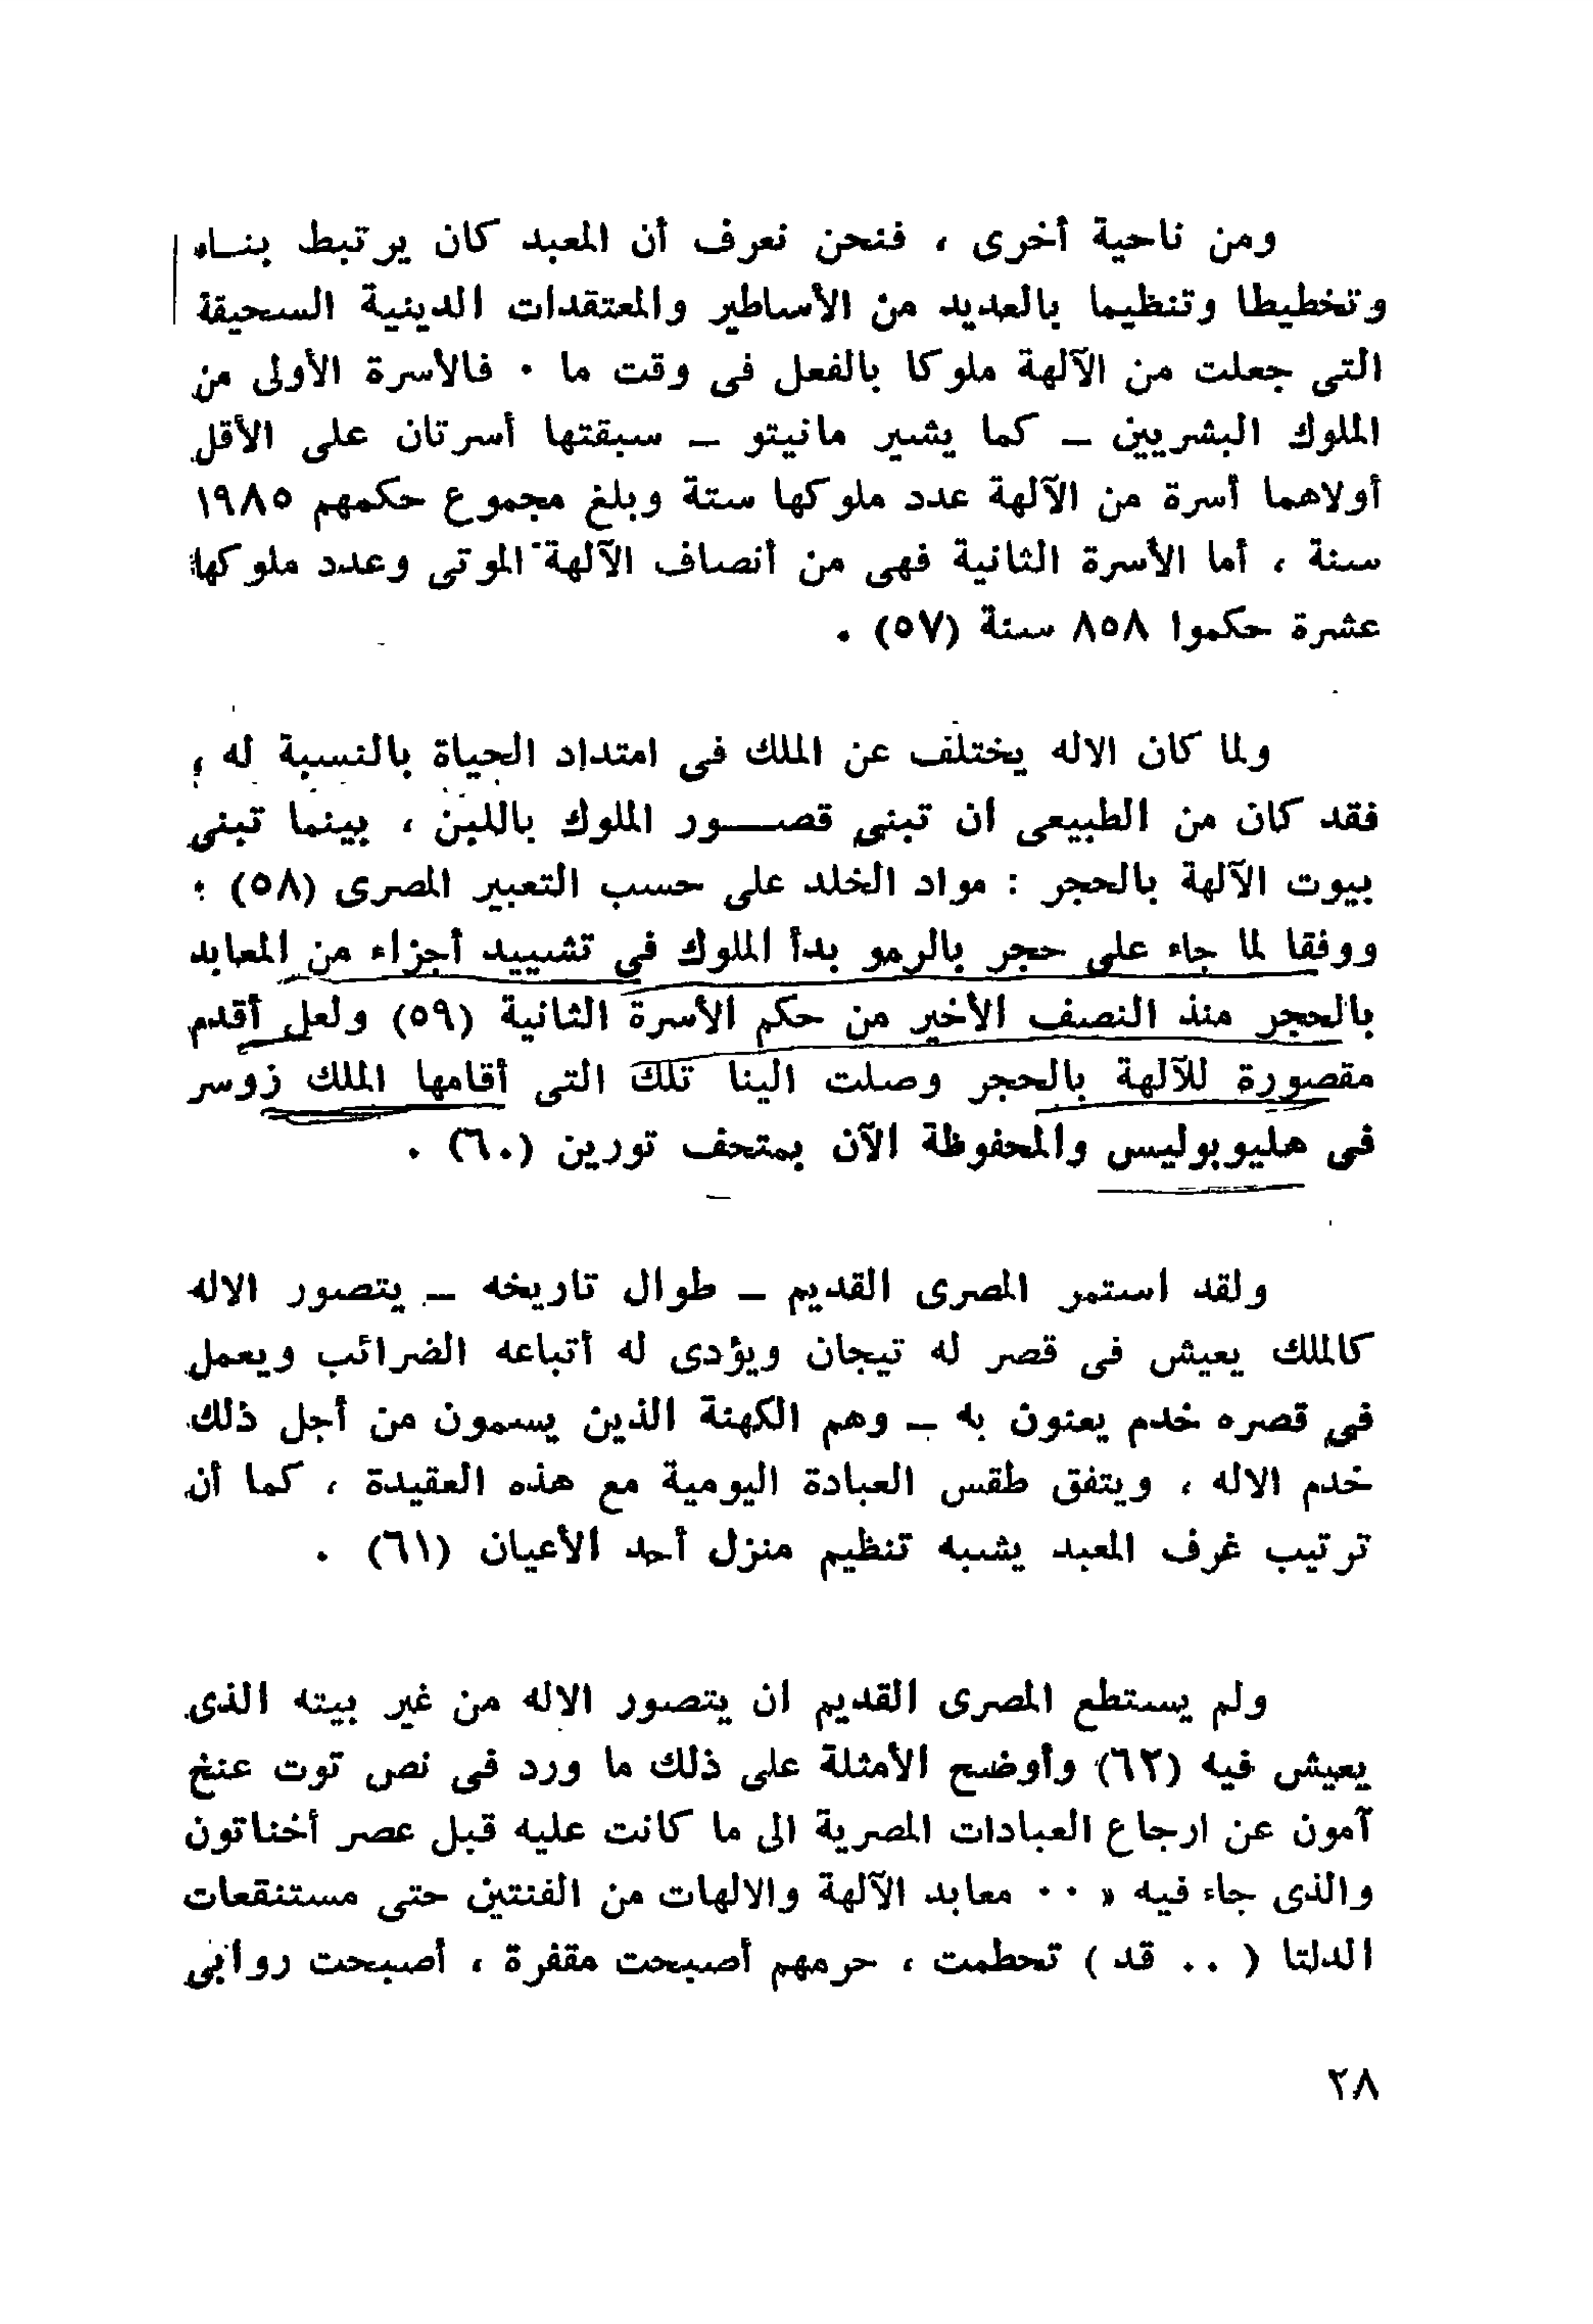 ومن ناحية أخرى ، فنحن نعرف أن المعبد كان يرتبط بناء
وتخطيطا وتنظيما بالعديد من الأساطير والمعتقدات الدينية السحيقة
التى جعلت من الآلهة ملوكا بالفعل فى وقت ما ٠ فالأسرة الأولى من
الملوك البشريين – كما يشير مانيتو – سبقتها أسرتان على الأقل
أولاهما أسرة من الآلهة عدد ملوكها ستة وبلغ مجموع حكمهم ١٩٨٥
سنة ، أما الأسرة الثانية فهى من أنصاف الآلهة الموتى وعدد ملوكها
عشرة حكموا ٨٥٨ سنة (٥٧) ٠
ولما كان الاله يختلف عن الملك فى امتداد الحياة بالنسبة له ،
فقد كان من الطبيعى ان تبنى قصور الملوك باللبن ، بينما تبنى
بيوت الآلهة بالحجر : مواد الخلد على حسب التعبير المصرى (٥٨) ؛
ووفقا لما جاء على حجر بالرمو بدأ الملوك في تشييد أجزاء من المعابد
بالحجر منذ النصف الأخير من حكم الأسرة الثانية (٥٩) ولعل أقدم
مقصورة للآلهة بالحجر وصلت الينا تلك التى أقامها الملك زوسر
فى هليوبوليس والمحفوظة الآن بمتحف تورين (٦٠) ٠
ولقد استمر المصرى القديم – طوال تاريخه – يتصور الاله
كالملك يعيش فى قصر له تيجان ويؤدى له أتباعه الضرائب ويعمل
في قصره خدم يعنون به – وهم الكهنة الذين يسمون من أجل ذلك
خدم الاله ، ويتفق طقس العبادة اليومية مع هذه العقيدة ، كما أن
ترتيب غرف المعبد يشبه تنظيم منزل أحد الأعيان (٦١) ٠
ولم يستطع المصرى القديم ان يتصور الاله من غير بيته الذى
يعيش فيه (٦٢) وأوضح الأمثلة على ذلك ما ورد فى نص توت عنخ
آمون عن ارجاع العبادات المصرية الى ما كانت عليه قبل عصر أخناتون
والذى جاء فيه « ٠٠ معابد الآلهة والالهات من الفنتين حتى مستنقعات
الدلتا ( ٠٠ قد ) تحطمت ، حرمهم أصبحت مقفرة ، أصبحت روابى
٢٨